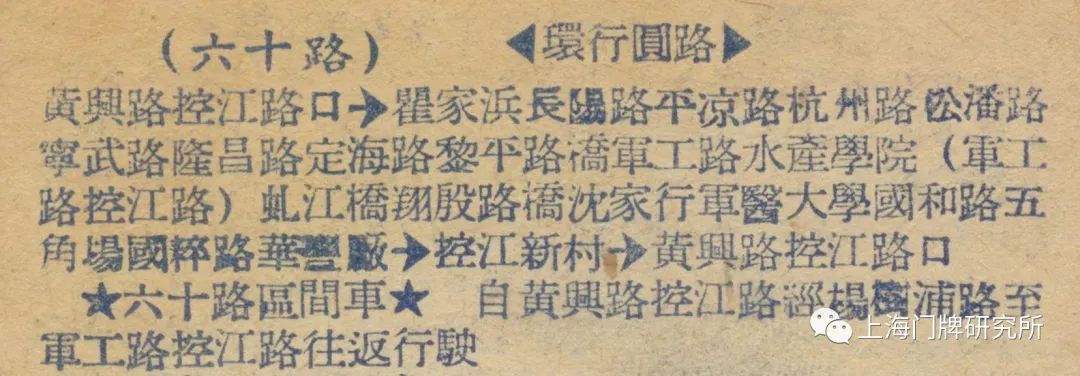 (六十路) ◀環行圓路▶
黃興路控江路口→瞿家浜長陽路平凉路杭州路松潘路
寧武路隆昌路定海路黎平路橋軍工路水產學院(軍工
路控江路)虬江橋翔殷路橋沈家行軍醫大學國和路五
角場國粹路華豐廠→控江新村→黃興路控江路口
★六十路區間車★ 自黃興路控江路經楊樹浦路至
軍工路控江路往返行駛
上海门牌研究所